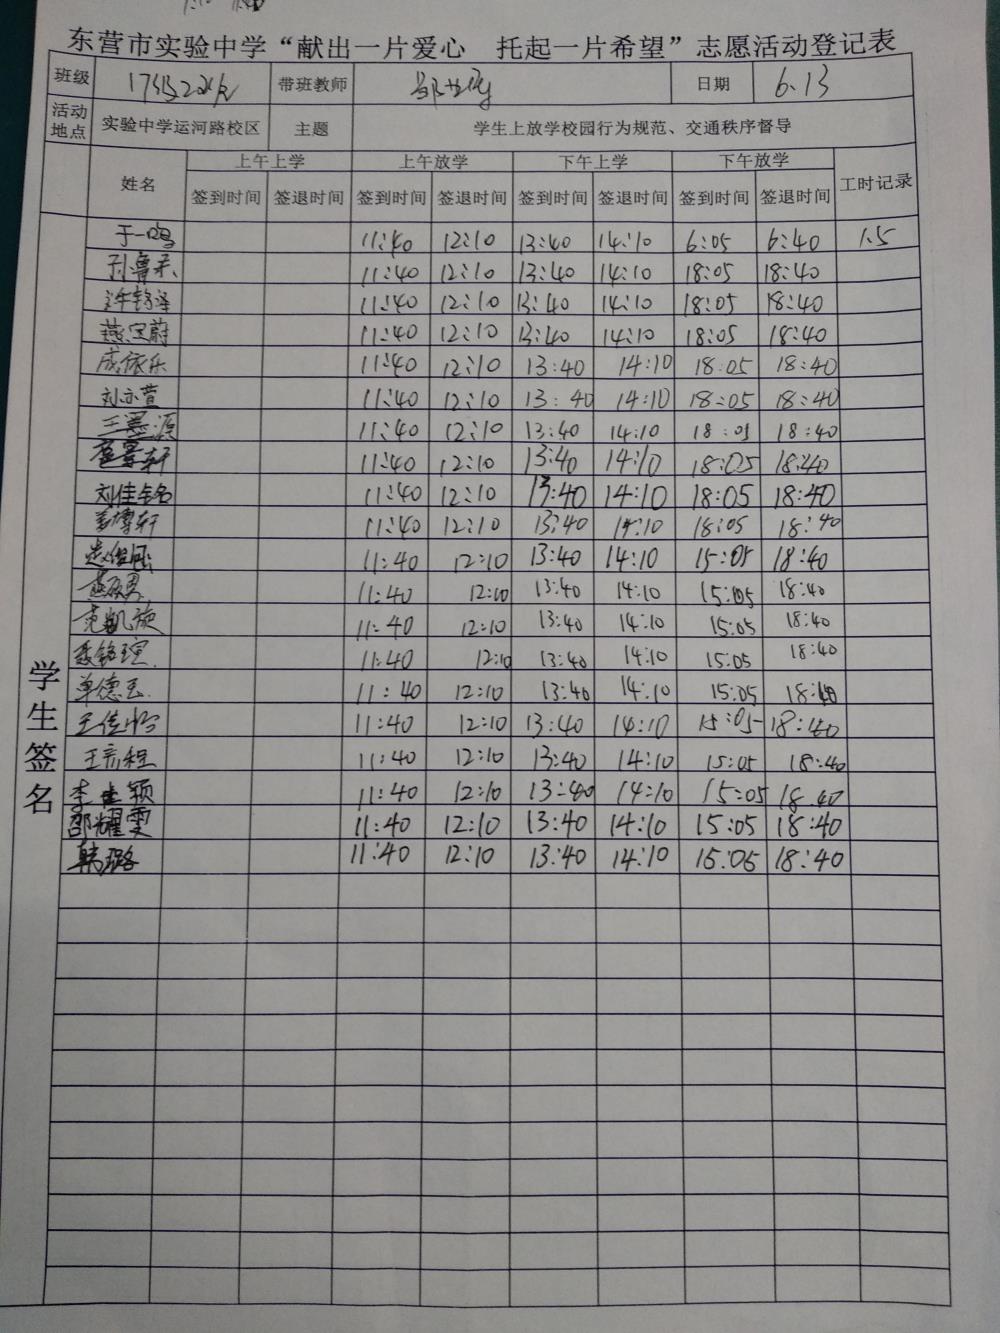 东营市实验中学“献出一片爱心 托起一片希望”志愿活动登记表
班级 带班教师 日期 6.13
活动地点 实验中学运河路校区 主题 学生上放学校园行为规范、交通秩序督导
姓名 上午上学 上午放学 下午上学 下午放学 工时记录
签到时间 签退时间 签到时间 签退时间 签到时间 签退时间 签到时间 签退时间
学生签名
于一鸣 11:40 12:10 13:40 14:10 6:05 6:40 1.5
孙鲁 11:40 12:10 13:40 14:10 18:05 18:40
许铭泽 11:40 12:10 13:40 14:10 18:05 18:40
燕宝蔚 11:40 12:10 13:40 14:10 18:05 18:40
成依乐 11:40 12:10 13:40 14:10 18:05 18:40
刘亦萱 11:40 12:10 13:40 14:10 18:05 18:40
王墨源 11:40 12:10 13:40 14:10 18:05 18:40
景轩 11:40 12:10 13:40 14:10 18:05 18:40
刘佳铭 11:40 12:10 13:40 14:10 18:05 18:40
博轩 11:40 12:10 13:40 14:10 18:05 18:40
11:40 12:10 13:40 14:10 15:05 18:40
11:40 12:10 13:40 14:10 15:05 18:40
凯旋 11:40 12:10 13:40 14:10 15:05 18:40
11:40 12:10 13:40 14:10 15:05 18:40
单德玉 11:40 12:10 13:40 14:10 15:05 18:40
王佳怡 11:40 12:10 13:40 14:10 15:05 18:40
王彦程 11:40 12:10 13:40 14:10 15:05 18:40
李佳颖 11:40 12:10 13:40 14:10 15:05 18:40
邵耀雯 11:40 12:10 13:40 14:10 15:05 18:40
韩璐 11:40 12:10 13:40 14:10 15:05 18:40